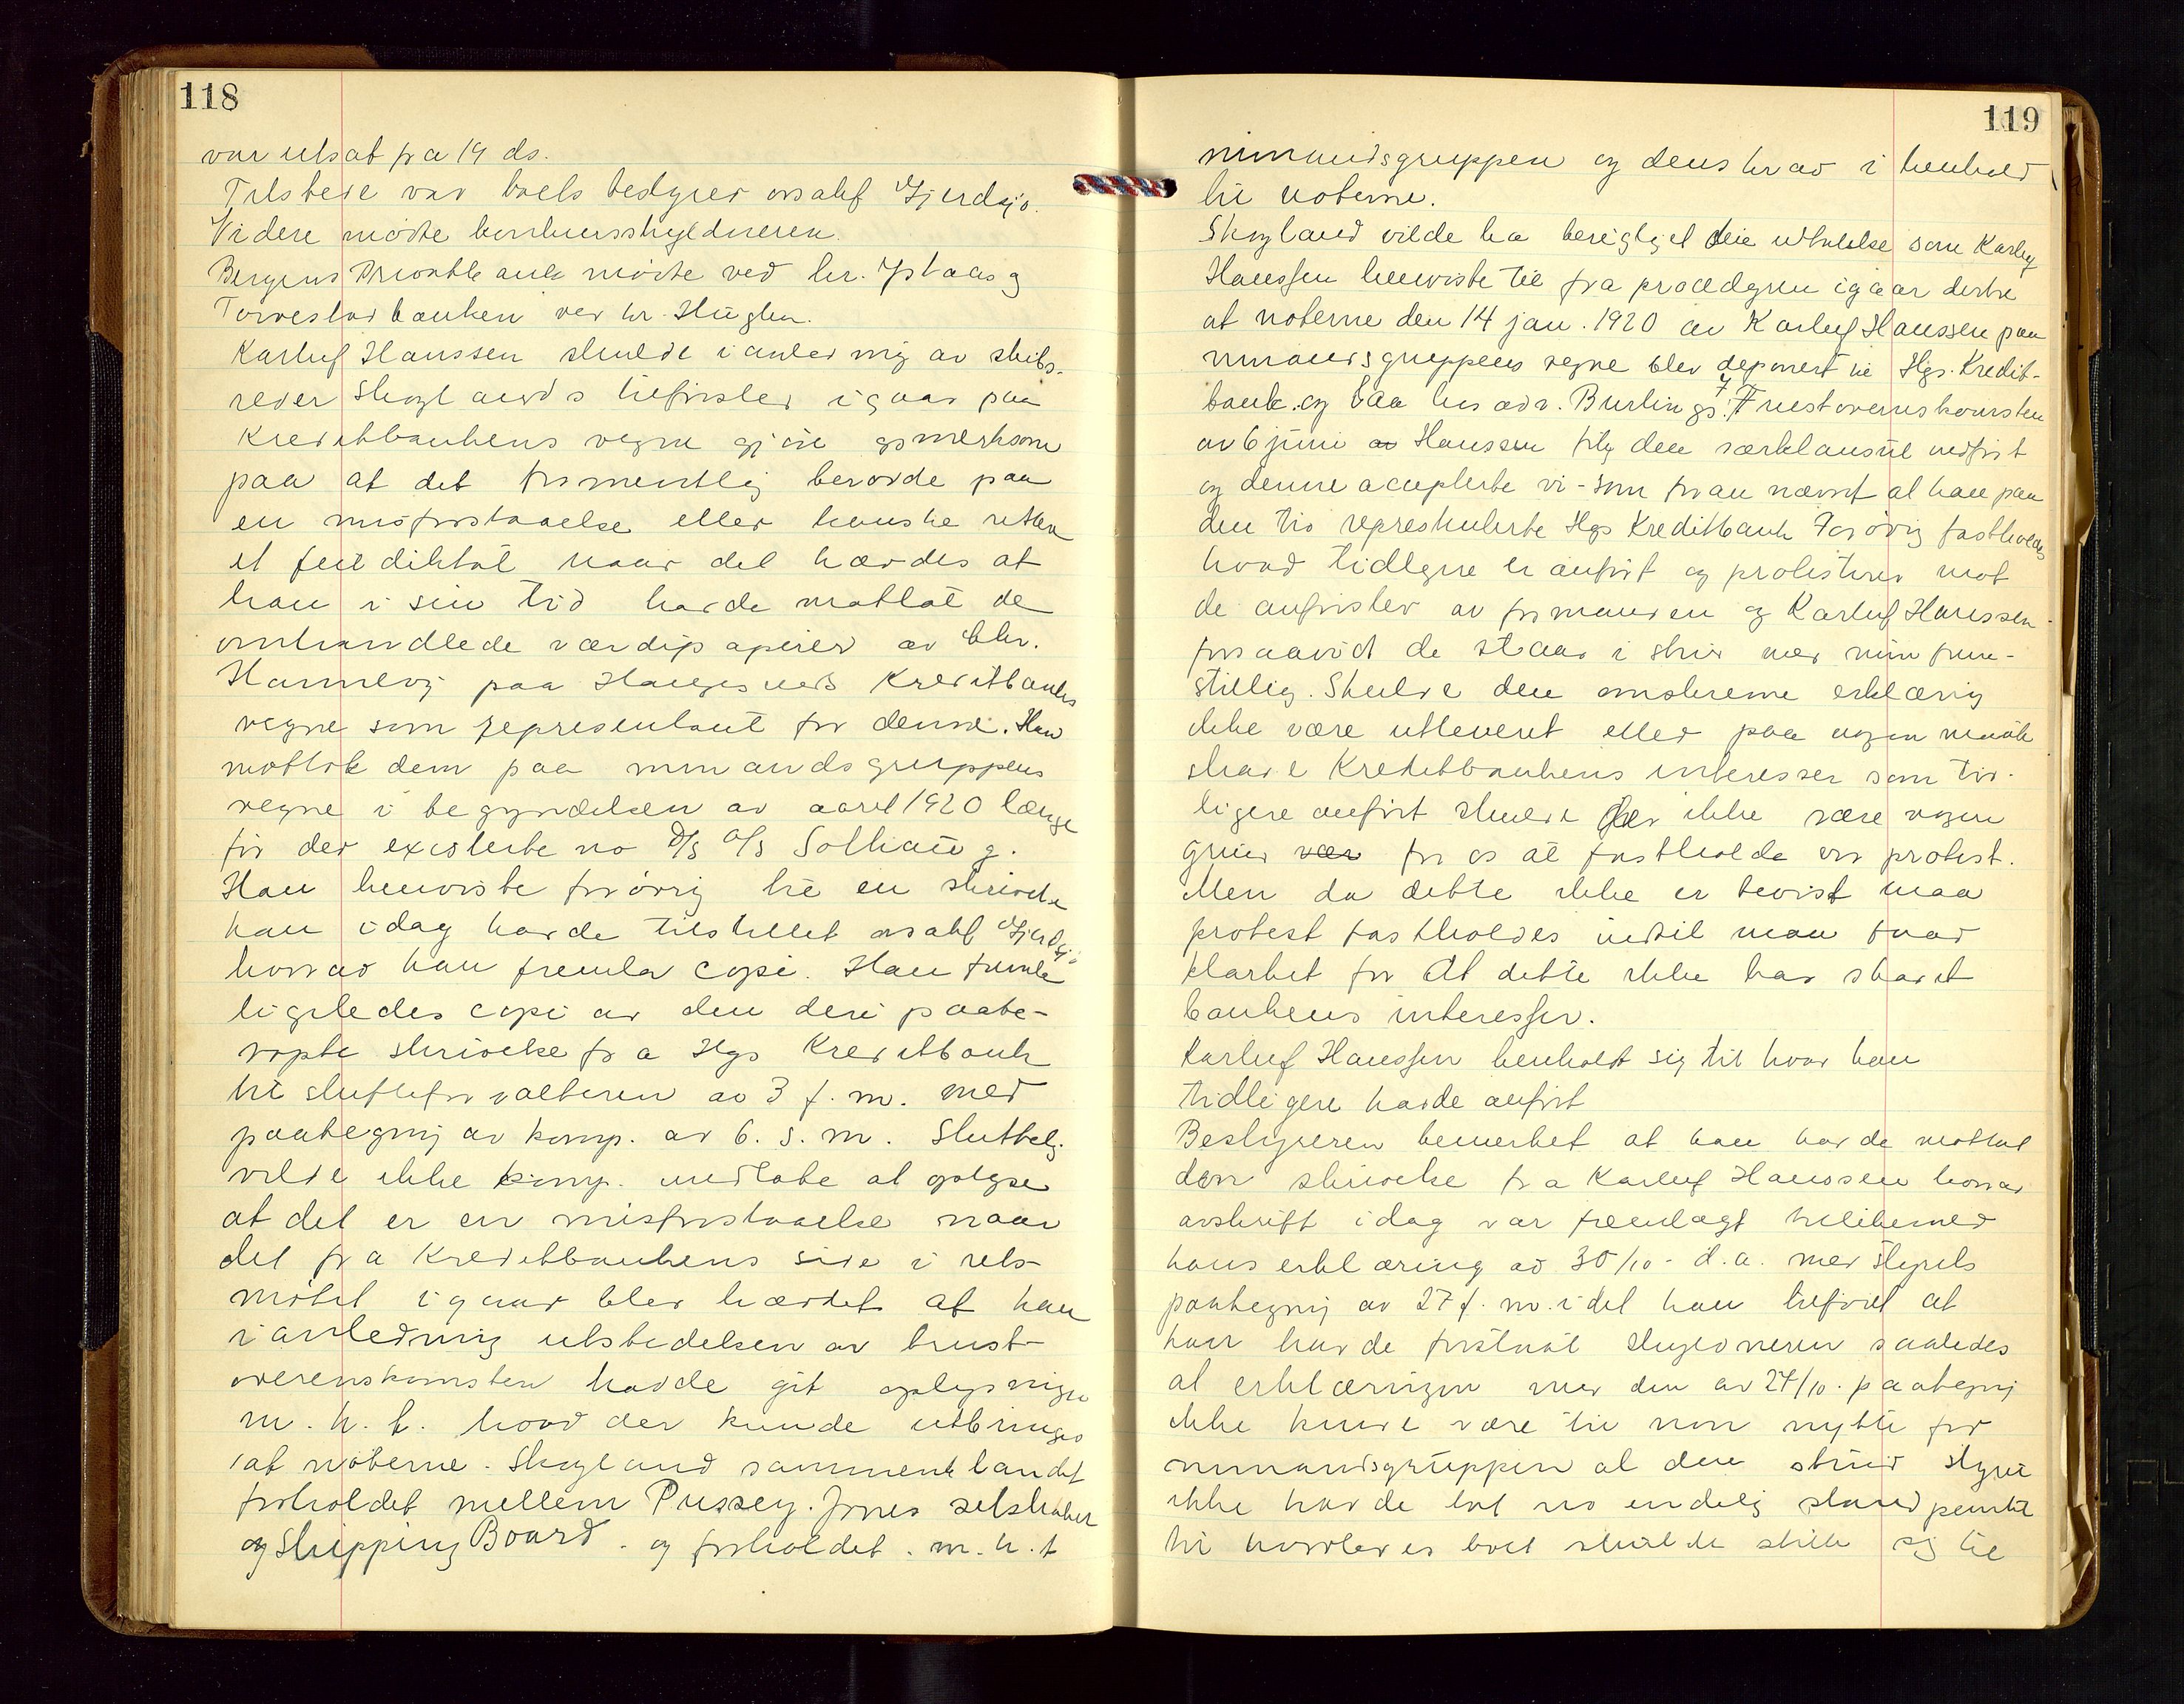 118
var utsat fra 19 ds.
Tilstede var boets bestyrer orsakf Gjerdsjø.
Videre møtte konkursskyldneren.
Bergens Privatbank møtte ved hr. Ystaas og
Torvestad banken ved hr. Hüglen.
Karluf Hanssen skulde i anledning av skibs-
reder Skoglands tilførsler igaar paa
Kreditbankens vegne gjøre opmerksom
paa at det formentlig berodde paa
en misforstaaelse eller kanske rettere
et feil diktat naar det hævdes at
han i sin tid hadde mottat de
omhandlede værdipapirer av Chr.
Hannevig paa Haugesunds Kreditbanks
vegne som representant for denne. Han
mottok dem paa nimandsgruppens
vegne i begyndelsen av aaret 1920 længe
før der existerte no D/S A/S Solhaug.
Han henviste forøvrig til en skrivelse
han idag hadde tilstillet orsakf Gjerdsjø
hvorav han fremla copi. Han fremla
ligeledes copi av den deri paabe-
ropte skrivelse fra Hgs Kreditbank
til skifteforvalteren av 3 f. m. med
paategning av komp. av 6. s. m. Sluttelig
vilde ikke komp. undlate at oplyse
at det er en misforstaaelse naar
det fra Kreditbankens side i rets-
møtet igaar blev hævdet at han
i anledning utstedelsen av trust-
overenskomsten hadde git oplysninger
m. h. t. hvad der kunde utbringes
at noterne. Skogland sammenblandet
forholdet mellem Pussey. Jones selskabet
og Shipping Board. og forholdet. m. h. t
119
nimandsgruppen og dens krav i henhold
til noterne.
Skogland vilde ha berigtiget den uttalelse som Karluf
Hanssen henviste til fra proceduren igaar derhen
at noterne den 14 jan. 1920 av Karluf Hanssen paa
nimandsgruppens vegne blev deponert i Hgs. Kredit-
bank. og paa hr adv. Burlings. Trustoverenskomsten
av 6 juni Hanssen fik den særklausul nedført
og denne acceptede vi - som foran nævnt at han paa
den tid representerte Hgs Kreditbank Forøvrig fastholdes
hvad tidligere er anført og protesterer mot
de anførsler av formanden og Karluf Hanssen
forsaavidt de staar i strid med min frem-
stilling. Skulde den omskrevne erklæring
ikke være utleveret eller paa nogen maate
skade Kreditbankens interesser som tid-
ligere anført skulde der ikke være nogen
grund for os at fastholde vor protest.
Men da dette ikke er bevist maa
protest fastholdes indtil man faar
klarhet for at dette ikke har skadet
bankens interesser.
Karluf Hanssen henholdt sig til hvad han
tidligere hadde anført
Bestyreren bemerket at han hadde mottat
den skrivelse fra Karluf Hanssen hvorav
avskrift idag var fremlagt tillikemed
hans erklæring av 30/10 - d. a. med Styrets
paategning av 27 f. m. idet han tilføiet at
han hadde forstaat skyldneren saaledes
at erklæringen med den av 27/10. paategning
ikke kunde være til non nytte for
nimandsgruppen at den strid styret
ikke hadde tat no endelig standpunkt
til hvorledes boet skulde stille sig til